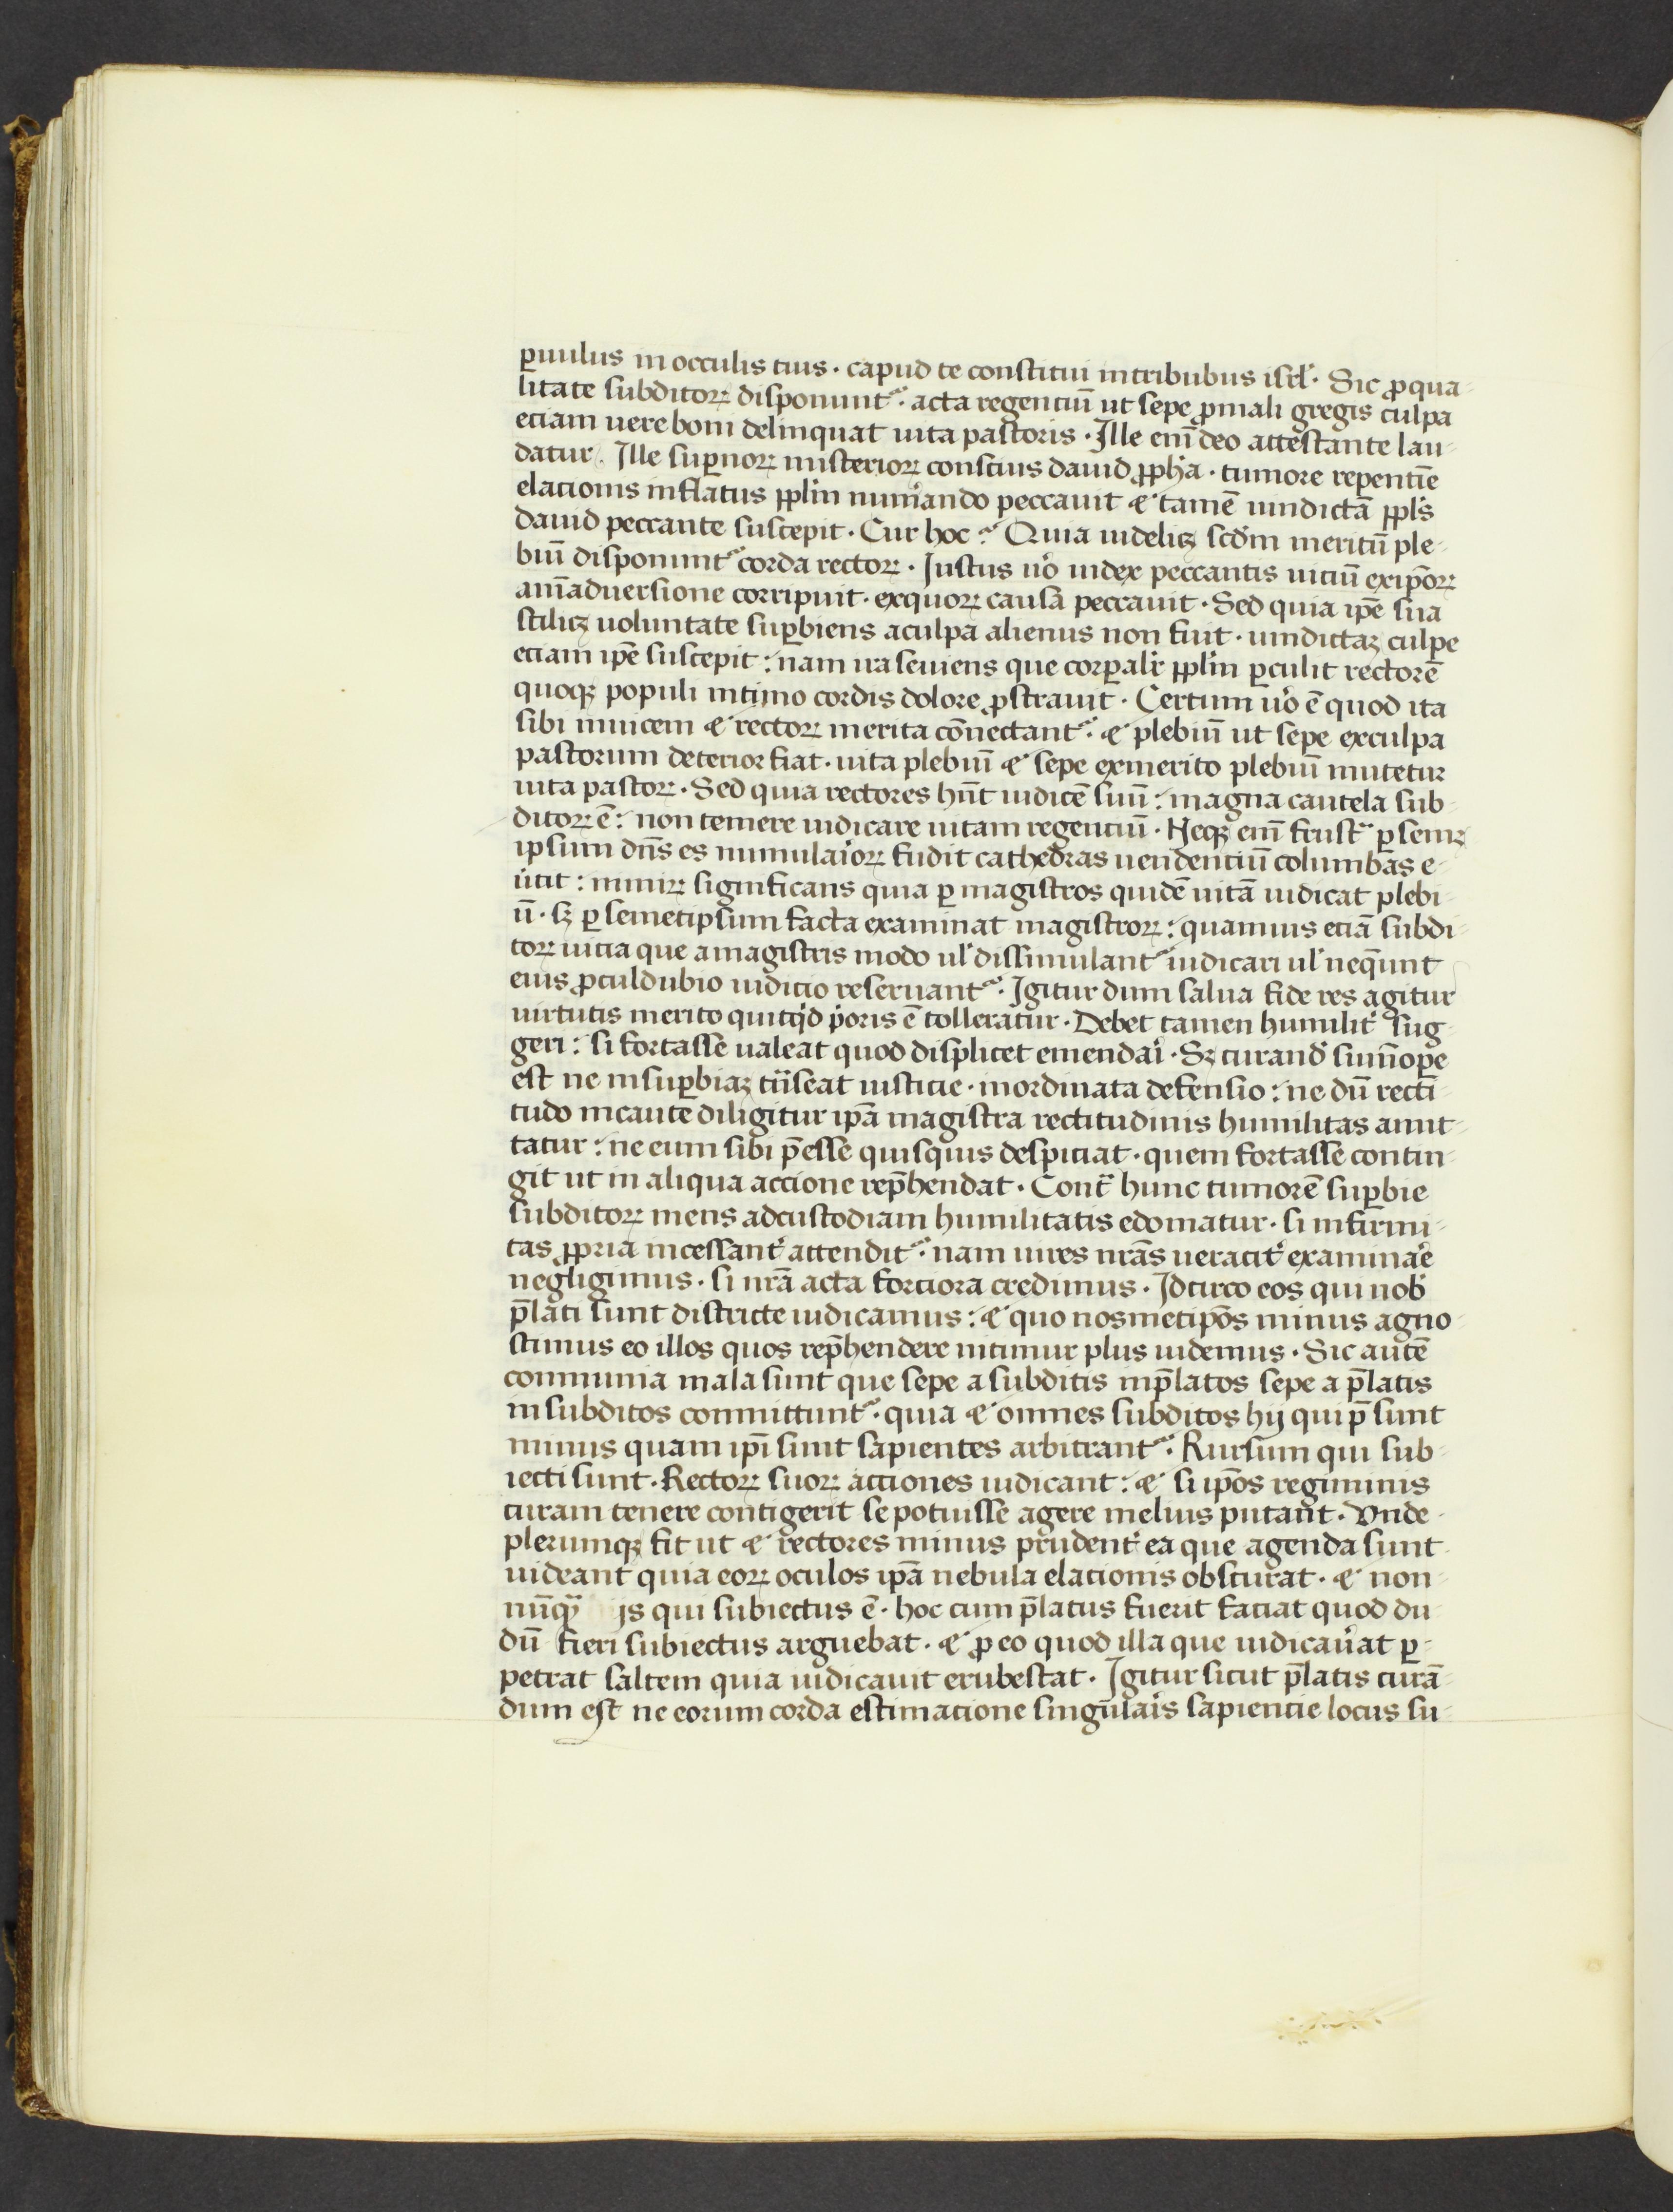 ꝑuulus in occulis tuis · capud te constitui in tribubus isrl̓ · Sic ꝓ qua-
litate subditoꝝ disponunt᷑ · acta regenciū ut sepe ꝓ mali gregis culpa
eciam uere boni delinquat uita pastoris · Ille eni᷑ deo attestante lau-
datur · Ille suꝑnoꝝ misterioꝝ conscius dauid ꝓph̓a · tumore repentine
elacionis inflatus ppl̓m num̓ando peccauit & tamē uindictā ppl̓s
dauid peccante suscepit · Cur hoc ? Quia uideliꝫ scd̓m meritū ple-
biū disponunt᷑ corda rectoꝝ · Iustus u̓o iudex peccantis uiciū ex ip̄oꝝ
ani̅aduersione corripuit · ex quoꝝ causa peccauit · Sed quia ip̄e sua
sciliꝫ uoluntate suꝑbiens a culpa alienus non fuit · uindictaꝫ culpe
eciam ip̄e suscepit : nam ira seuiens que corꝑalit̓ ppl̓m ꝑculit rectorē
quoqꝫ populi intimo cordis dolore ꝓstrauit · Certum u̓o ē quod ita
sibi inuicem & rectoꝝ merita cōnectant᷑ · & plebiū ut sepe ex culpa
pastorum deterior fiat · uita plebiū & sepe ex merito plebiū mutetur
uita pastoꝝ · Sed quia rectores hn̄t iudicē suū : magna cautela sub-
ditoꝝ ē : non temere iudicare uitam regenciū · Neqꝫ eni᷑ frustᵃ ꝑ semꝫ
ipsum dn̄s es numulaꝛ̓oꝝ fudit cathedras uendenciū columbas e-
u̓tit : nimiꝝ significans quia ꝑ magistros quidē uitā iudicat plebi-
ū · sꝫ ꝑ semetipsum facta examinat magistroꝝ : quamuis eciā subdi-
toꝝ uicia que a magistris modo ul̓ dissimulant᷑ iudicari ul̓ neq̄unt
eius ꝓculdubio iudicio reseruant᷑ · Igitur dum salua fide res agitur
uirtutis merito quicq̓d p̓oris ē tolleratur · Debet tamen humilit̓ sug-
geri : si fortasse ualeat quod displicet emendaꝛ̓i · Sꝫ curand̓ sum̄oꝑe
est ne in suꝑbiaꝫ t̃nseat iusticie · inordinata defensio : ne dū recti-
tudo incaute diligitur ip̄a magistra rectitudinis humilitas amit-
tatur : ne eum sibi p̄esse quisquis despiciat · quem fortasse contin-
git ut in aliqua accione rep̄hendat · Contᵃ hunc tumorē suꝑbie
subditoꝝ mens ad custodiam humilitatis edomatur · si infirmi-
tas ꝓpria incessant̓ attendit᷑ · nam uires nr̄as ueracit̓ examina̓e
negligimus · si nr̄a acta forciora credimus · Idcirco eos qui nob̓
p̄lati sunt districte iudicamus : & quo nosmetip̄os minus agno-
scimus eo illos quos rep̄hendere nitimur plus uidemus · Sic autē
communia mala sunt que sepe a subditis in p̄latos sepe a p̄latis
in subditos committunt᷑ · quia & omnes subditos hij qui p̄ sunt
minus quam ip̄i sunt sapientes arbitrant᷑ · Rursum qui sub-
iecti sunt · Rectoꝝ suoꝝ acciones iudicant : & si ip̄os regiminis
curam tenere contigerit se potuisse agere melius putant · Unde
plerumqꝫ fit ut & rectores minus prudent̓ ea que agenda sunt
uideant quia eoꝝ oculos ip̄a nebula elacionis obscurat · & non-
nūqᵃ is qui subiectus ē · hoc cum p̄latus fuerit faciat quod du-
dū fieri subiectus arguebat · & ꝓ eo quod illa que iudicau̓at ꝑ-
petrat saltem quia iudicauit erubescat · Igitur sicut p̄latis curā-
dum est ne eorum corda estimacione singulaꝛ̓is sapiencie locus su-